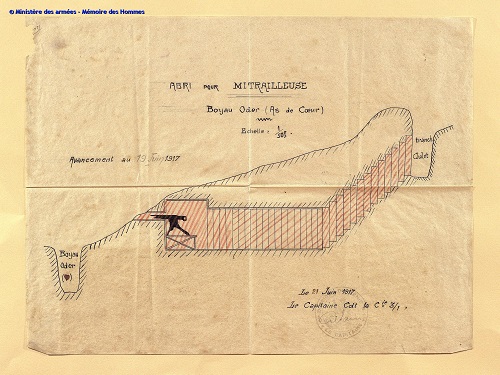 © Ministère des armées - Mémoire des Hommes
ABRI POUR MITRAILLEUSE
Boyau Oder (As de Cœur)
Echelle :
Avancement au 19 Juin 1917
Tranch
Boyau
Oder
Le 21 Juin 1917.
Le Capitaine Cdt la Cie 3/1.